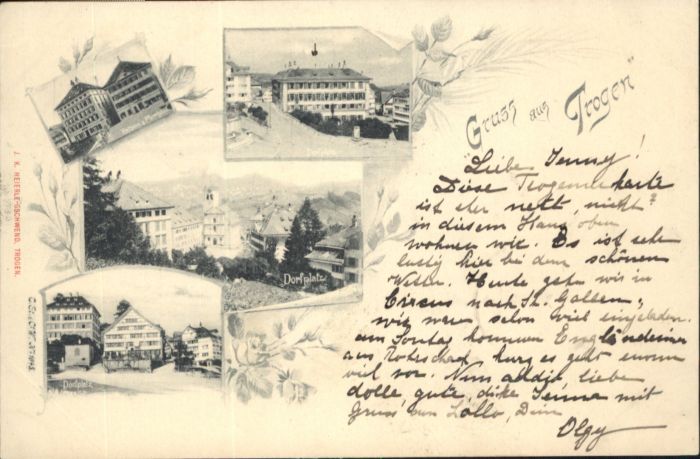 Gruss aus Trogen
Liebe Jenny!
Diese Trogenerkarte
ist eher nett, nicht?
in diesem Haus oben
wohnen wir. Es ist sehr
lustig hier bei dem schönen
Wetter. Heute gehn wir in
Circus nach St. Gallen,
wir waren schon viel eingeladen.
am Sontag kommen Engländeiner
aus Rohrschach kurz es geht enorm
viel vor. Nun liebe
dolle, gute, dike Jenne mit
Gruss von Lollo, Dein
Olgy
Dorfplatz
Dorfplatz
J. K. HEIERLE-GSCHWEND, TROGEN.